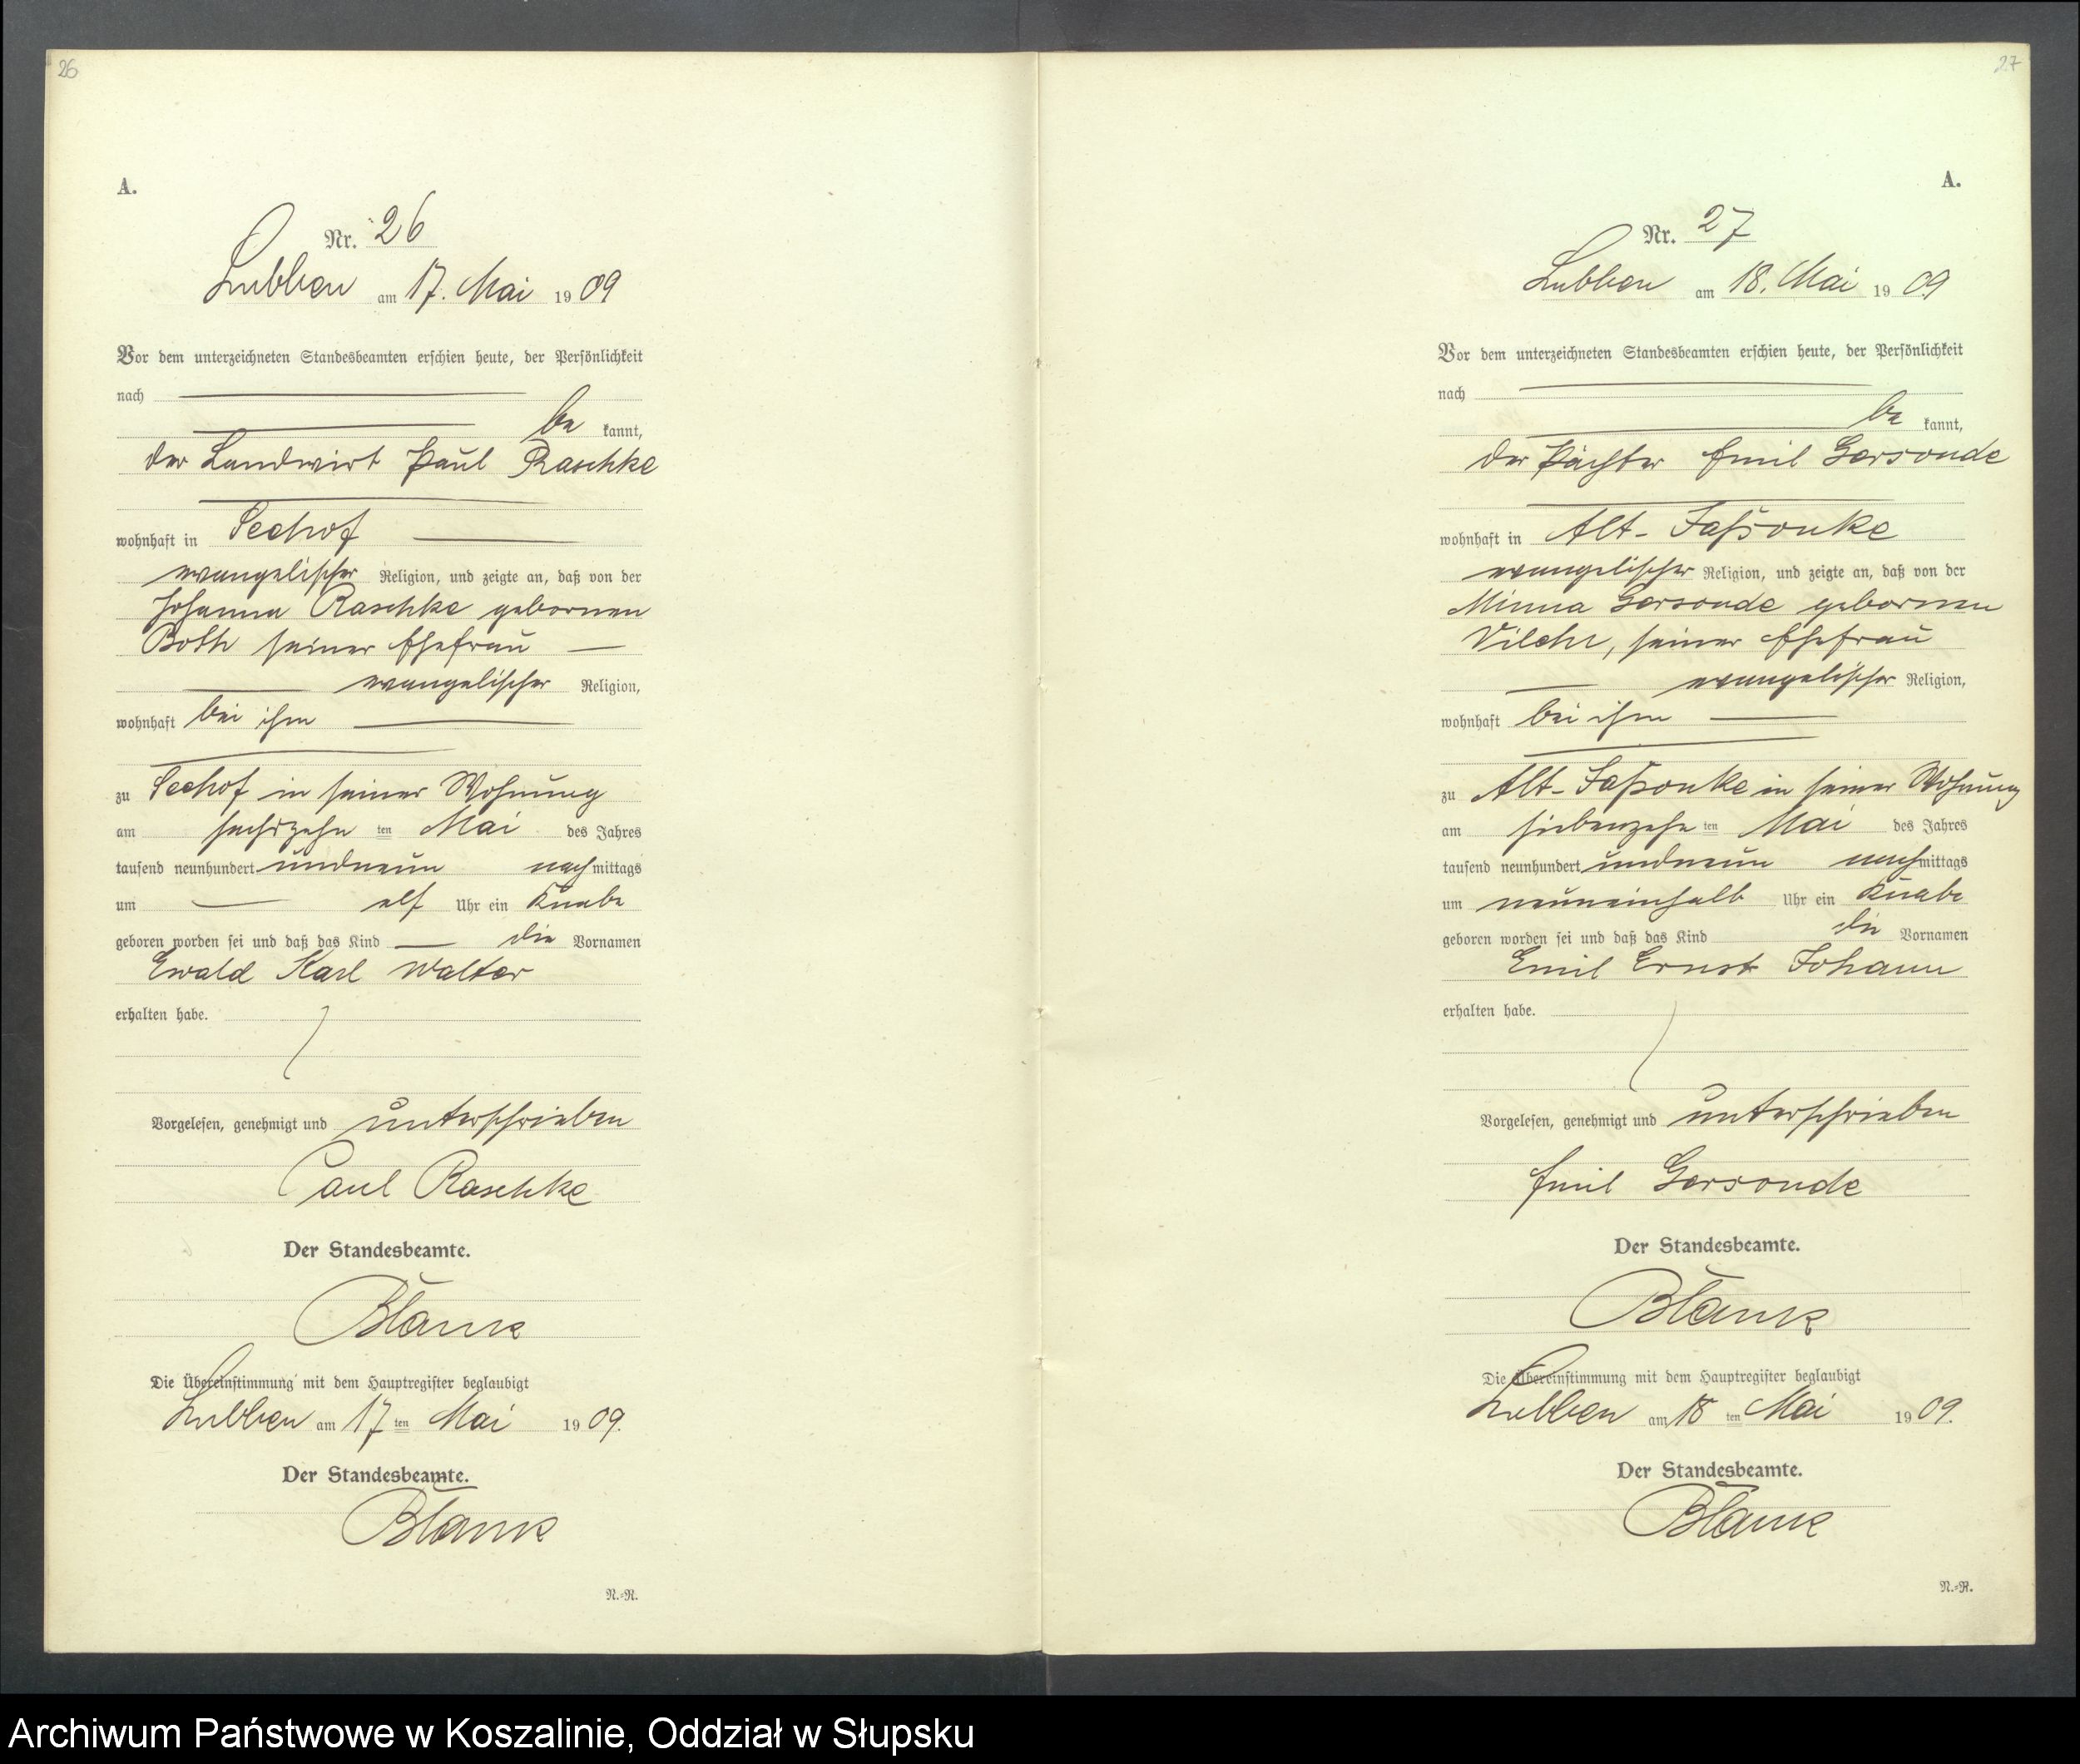 26
A.
Nr. 26
Lubben am 17. Mai 1909
Vor dem unterzeichneten Standesbeamten erschien heute, der Persönlichkeit
nach
be kannt,
der Landwirt Paul Raschke
wohnhaft in Seehof
evangelischer Religion, und zeigte an, daß von der
Johanna Raschke gebornen
Both seiner Ehefrau
evangelischer Religion,
wohnhaft bei ihm
zu Seehof in seiner Wohnung
am sechszehn ten Mai des Jahres
tausend neunhundert undneun nachmittags
um elf Uhr ein Knabe
geboren worden sei und daß das Kind die Vornamen
Ewald Karl Walter
erhalten habe.
Vorgelesen, genehmigt und unterschrieben
Paul Raschke
Der Standesbeamte.
Die Übereinstimmung mit dem Hauptregister beglaubigt
Lubben am 17 ten Mai 1909.
Der Standesbeamte.
N.=R.
27
A.
Nr. 27
Lubben am 18. Mai 1909
Vor dem unterzeichneten Standesbeamten erschien heute, der Persönlichkeit
nach
be kannt,
der Pächter Emil Gersonde
wohnhaft in Alt-Jaßonke
evangelischer Religion, und zeigte an, daß von der
Minna Gersonde gebornen
seiner Ehefrau
evangelischer Religion,
wohnhaft bei ihm
zu Alt-Jaßonke in seiner Wohnung
am siebenzehn ten Mai des Jahres
tausend neunhundert undneun nachmittags
um neuneinhalb Uhr ein Knabe
geboren worden sei und daß das Kind die Vornamen
Emil Ernst Johann
erhalten habe.
Vorgelesen, genehmigt und unterschrieben
Emil Gersonde
Der Standesbeamte.
Die Übereinstimmung mit dem Hauptregister beglaubigt
Lubben am 18 ten Mai 1909.
Der Standesbeamte.
N.=R.
Archiwum Państwowe w Koszalinie, Oddział w Słupsku